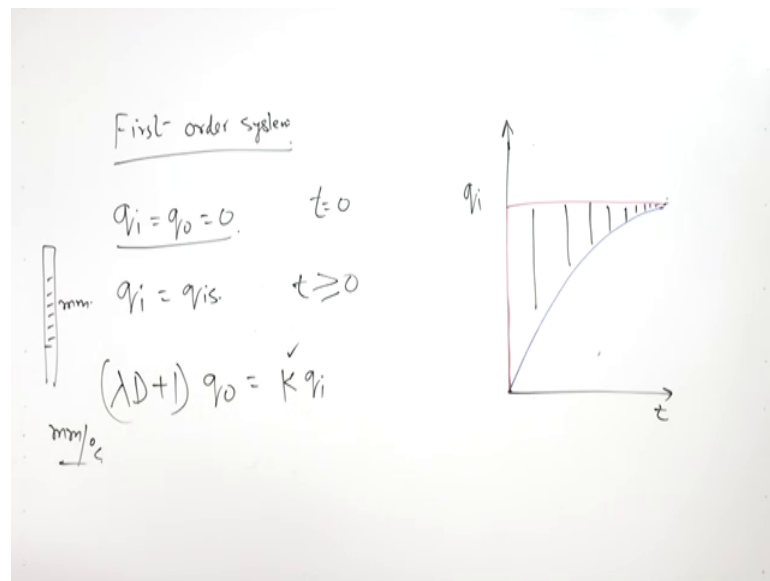 First order system
qi = q0 = 0. t=0
qi = qis. t ≥ 0
mm.
(λD+1) q0 = K qi
mm/°c
qi
t